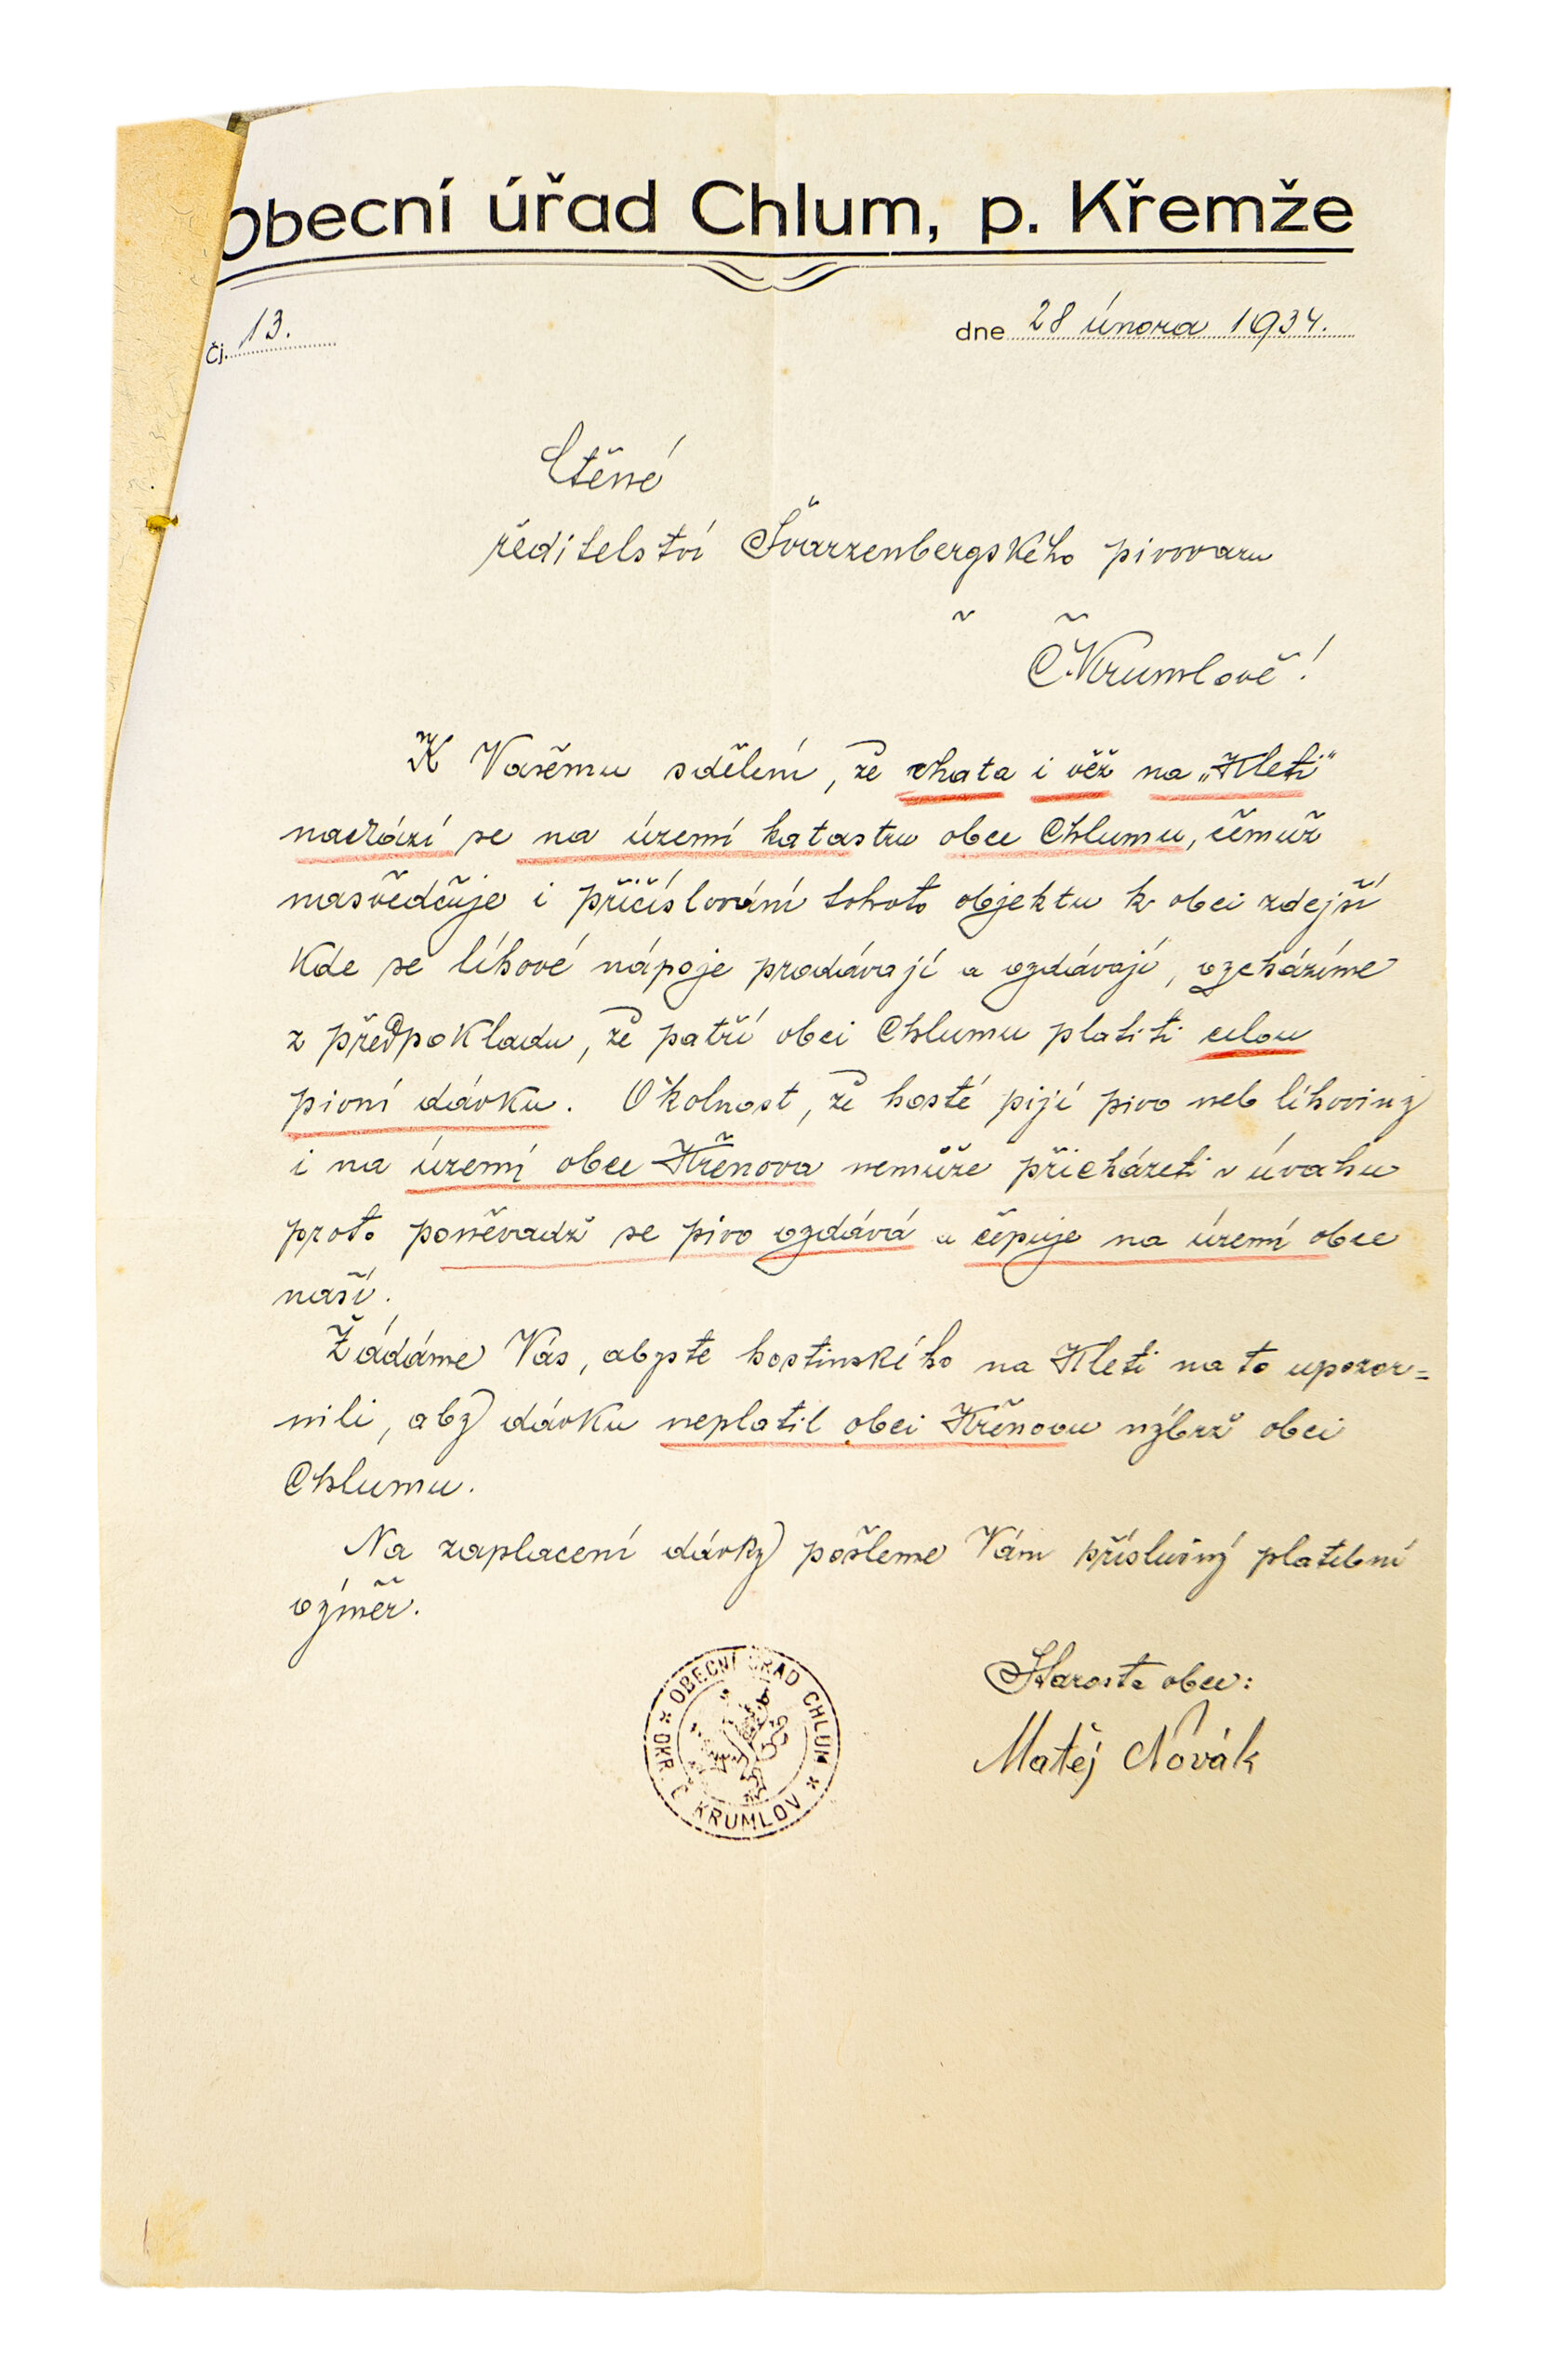 Obecní úřad Chlum, p. Křemže
čj. 13.
dne 28 února 1934.
Ctěné
ředitelství Švarzenbergského pivovaru
v
Č. Krumlově!
K Vašemu sdělení, že chata i věž na „Kleti"
nachází se na území katastru obce Chlumu, čemuž
nasvědčuje i přičíslování tohoto objektu k obci zdejší
kde se líhové nápoje prodávají a vydávají, vycházíme
z předpokladu, že patří obci Chlumu platiti celou
pivní dávku. Okolnost, že hosté pijí pivo neb líhoviny
i na území obce Křenova nemůže přicházeti v úvahu
proto poněvadž se pivo vydává a čepuje na území obce
naší.
Žádáme Vás, abyste hostinského na Kleti na to upozor=
nili, aby dávku neplatil obci Křenovu nýbrž obci
Chlumu.
Na zaplacení dávky pošleme Vám příslušný platební
výměr.
Starosta obce:
Matěj Novák
OBECNÍ ÚŘAD CHLUM
OKR. Č. KRUMLOV